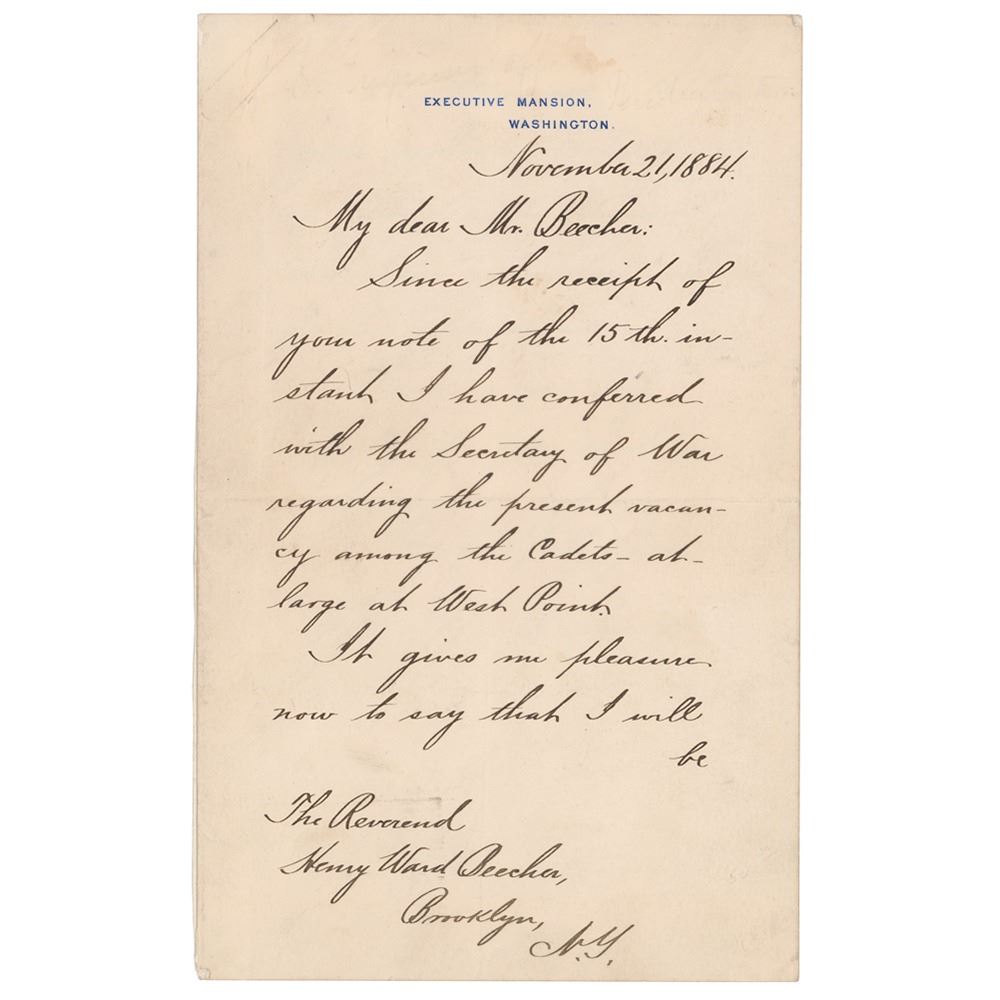 EXECUTIVE MANSION,
WASHINGTON.
November 21, 1884.
My dear Mr. Beecher:
Since the receipt of
your note of the 15th. in-
stant I have conferred
with the Secretary of War
regarding the present vacan-
cy among the Cadets-at-
large at West Point.
It gives me pleasure
now to say that I will
be
The Reverend
Henry Ward Beecher,
Brooklyn,
N.Y.